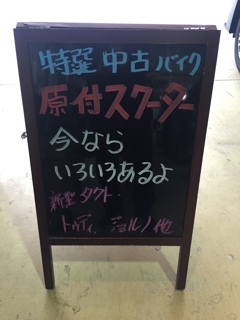 特選 中古バイク
原付スクーター
今なら
いろいろあるよ
新型 タクト
トゥディ、ジョルノ他